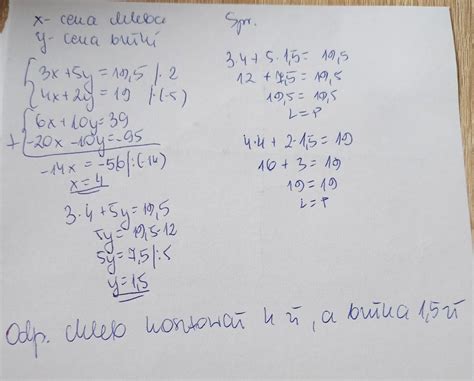 x- cena chleba
y- cena bułki
3x+5y=19,5 /·2
4x+2y=19 /·(-5)
6x+10y=39
+ -20x-10y=-95
-14x=-56/:(-14)
x=4
3·4+5y=19,5
5y=19,5-12
5y=7,5/:5
y=1,5
Spr.
3·4+5·1,5=19,5
12+7,5=19,5
19,5=19,5
L=P
4·4+2·1,5=19
16+3=19
19=19
L=P
Odp. Chleb kosztował 4 zł, a bułka 1,5 zł